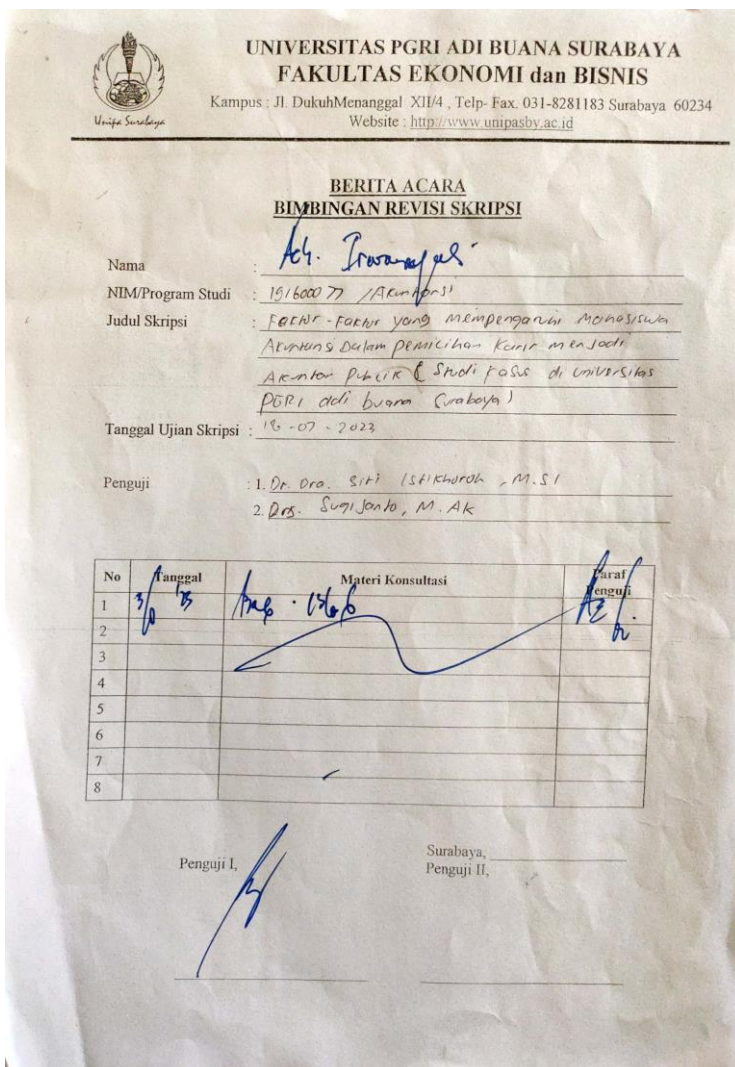 UNIVERSITAS PGRI ADI BUANA SURABAYA
FAKULTAS EKONOMI dan BISNIS
Kampus : Jl. DukuhMenanggal XII/4 , Telp- Fax. 031-8281183 Surabaya 60234
Website : http://www.unipasby.ac.id
Unipa Surabaya
BERITA ACARA
BIMBINGAN REVISI SKRIPSI
Nama : Ach.
NIM/Program Studi : 191600077 / Akuntansi
Judul Skripsi : Faktor-Faktor yang mempengaruhi Mahasiswa
Akuntansi Dalam pemilihan Karir menjadi
Akuntan Publik ( Studi Kasus di universitas
PGRI adi buana Surabaya)
Tanggal Ujian Skripsi : 18-07-2023
Penguji : 1. Dr. Dra. Siti Istikhoroh, M.Si
2. Drs. Sugijanto, M.Ak
No Tanggal Materi Konsultasi Paraf Penguji
1
2
3
4
5
6
7
8
Surabaya,
Penguji I, Penguji II,